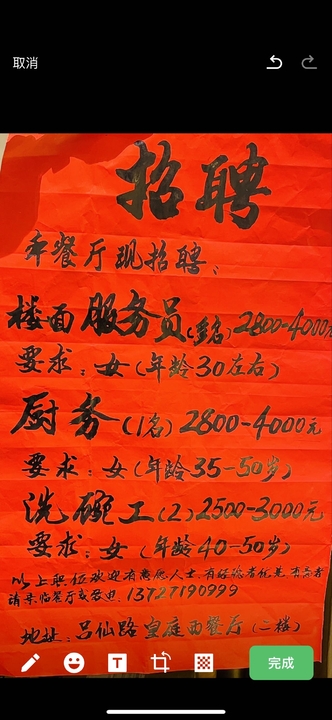 取消
招聘
本餐厅现招聘：
楼面服务员(多名)2800-4000元
要求：女(年龄30左右)
厨务(1名)2800-4000元
要求：女(年龄35-50岁)
洗碗工(2)2500-3000元
要求：女(年龄40-50岁)
以上职位欢迎有意愿人士,有经验者优先,有意者
请亲临餐厅或发电.13727190999
地址：吕仙路皇庭西餐厅(二楼)
T
完成